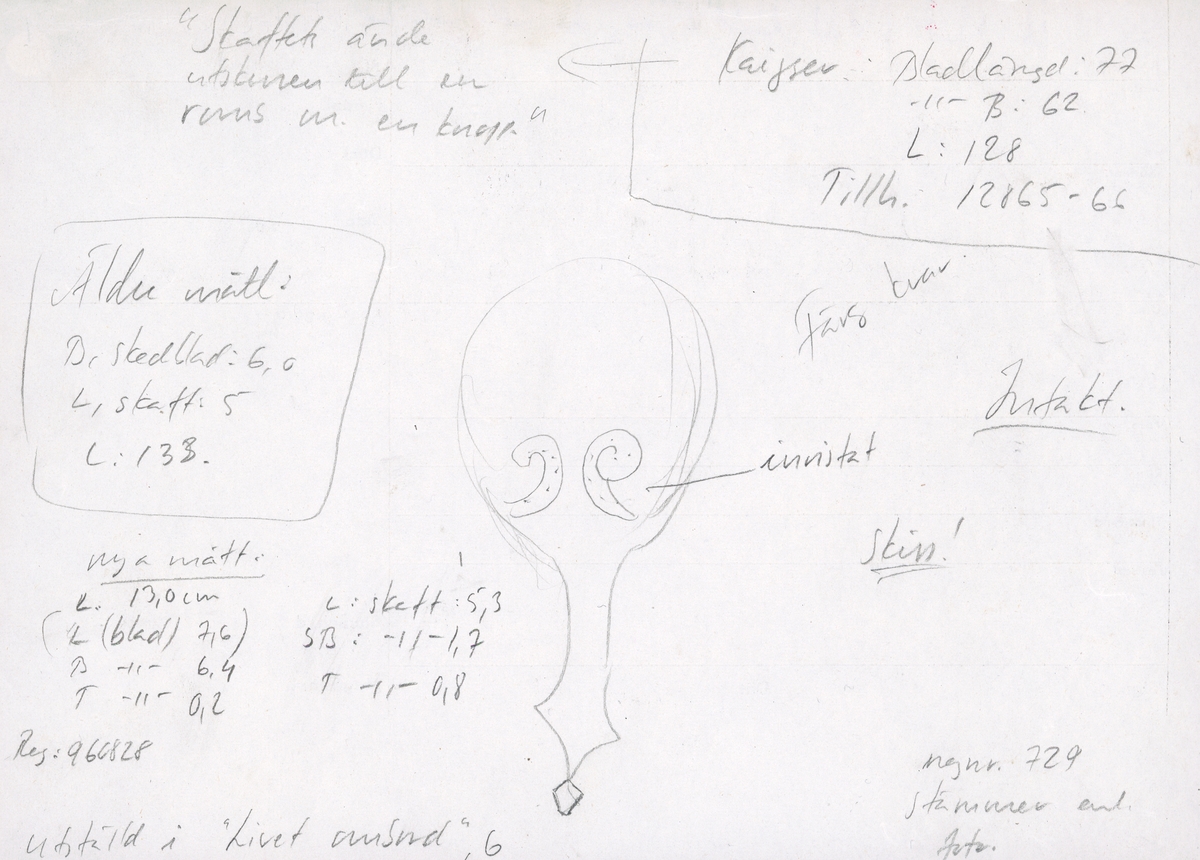 "Skaftets ände
utskuren till en
romb m. en knopp"
Kaijser: Bladlängd: 77
-"- B: 62
L: 128
Tillh. 12865-66
Äldre mått:
B, skedblad: 6,0
L, skaft: 5
L: 133.
Färg kvar.
Intakt.
inristat
Skiss!
nya mått:
L. 13,0 cm
(L (blad) 7,6)
B -"- 6,4
T -"- 0,2
L: skaft: 5,3
SB: -"- 1,7
T -"- 0,8
Reg: 960828
negnr. 729
stämmer enl.
foto.
utställd i "Livet ombord", 6